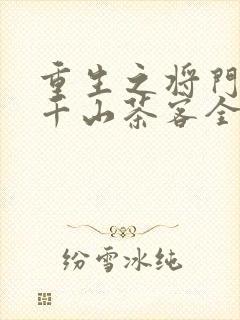 重生之将門
千山茶客全
纷雪冰纯